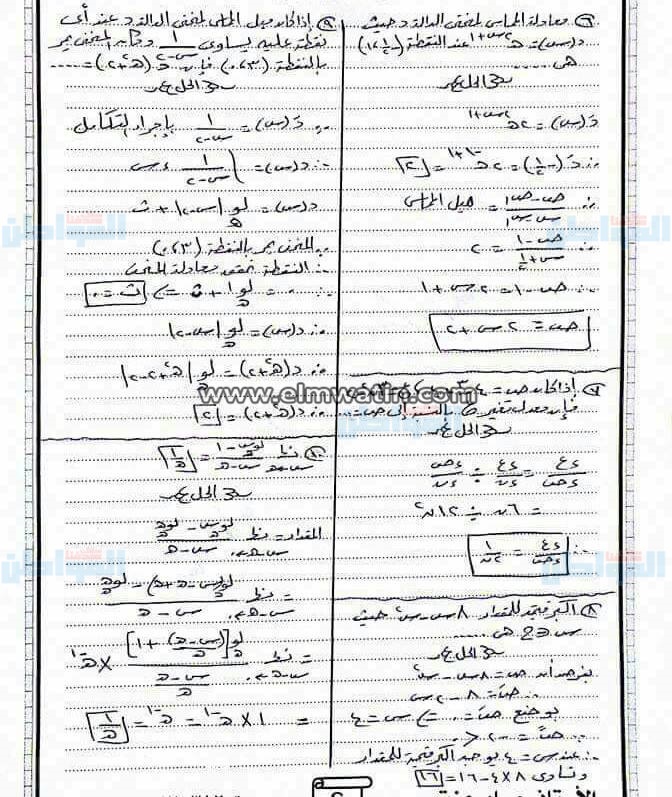 ٦ معادلة المماس لمنحنى الدالة د حيث
د(س) = هـ^(٢س+١) عند النقطة (-١/٢، ١)
هى ......
الحل
دَ(س) = ٢هـ^(٢س+١)
∴ دَ(-١/٢) = ٢هـ^(-١+١) = ٢
∴ (ص - ص١)/(س - س١) = ميل المماس
∴ (ص - ١)/(س + ١/٢) = ٢
∴ ص - ١ = ٢س + ١
ص = ٢س + ٢
٧ إذا كان ص =
فإن معدل تغير ع بالنسبة إلى ص =
الحل
ءع/ءص = ءع/ءن ÷ ءص/ءن
= ٦ن ÷ ١٢ن²
∴ ءع/ءص = ١/٢ن
٨ أكبر قيمة للمقدار ٨س - س² حيث
س ∈ ح هى ......
الحل
بفرض أن ص = ٨س - س²
∴ صَ = ٨ - ٢س
بوضع صَ = ٠ ⇐ س = ٤
صً = -٢ < ٠
∴ عند س = ٤ يوجد أكبر قيمة للمقدار
وتساوى ٨×٤ - ١٦ = ١٦
٩ إذا كان ميل المماس لمنحنى الدالة د عند أى
نقطة عليه يساوى ١/(س-٢) وكان المنحنى يمر
بالنقطة (٣، ٠) فإن د(هـ²+٢) = ......
الحل
∵ دَ(س) = ١/(س-٢) بإجراء التكامل
∴ د(س) = ∫ ١/(س-٢) ءس
د(س) = لو_هـ |س-٢| + ث
∵ المنحنى يمر بالنقطة (٣، ٠)
∴ النقطة تحقق معادلة المنحنى
∴ ٠ = لو_هـ ١ + ث ⇐ ث = ٠
∴ د(س) = لو_هـ |س-٢|
∴ د(هـ²+٢) = لو_هـ |هـ²+٢-٢|
∴ د(هـ²+٢) = ٢
١٠ نهـا س←هـ (لو_هـ س - ١)/(س - هـ) = ١/هـ
الحل
المقدار = نهـا س-هـ←٠ (لو_هـ س - لو_هـ هـ)/(س - هـ)
= نهـا س-هـ←٠ (لو_هـ (س - هـ + هـ) - لو_هـ هـ)/(س - هـ)
= نهـا س-هـ←٠ لو_هـ [(س-هـ)/هـ + ١]/((س-هـ)/هـ) × هـ^-١
= ١ × هـ^-١ = هـ^-١ = ١/هـ
www.elmwatin.com
المواطن